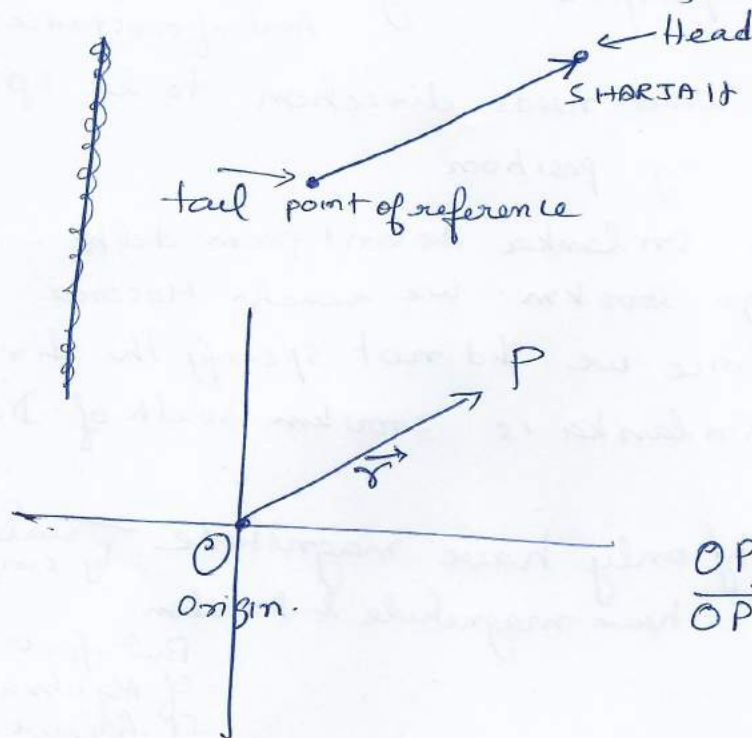 Head
SHARJAH
tail point of reference
P
r
O
Origin.
OP
OP